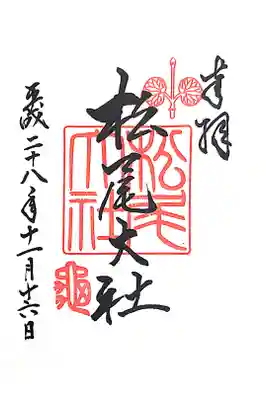 奉拝
松尾大社
松尾大社
平成二十八年十一月十六日